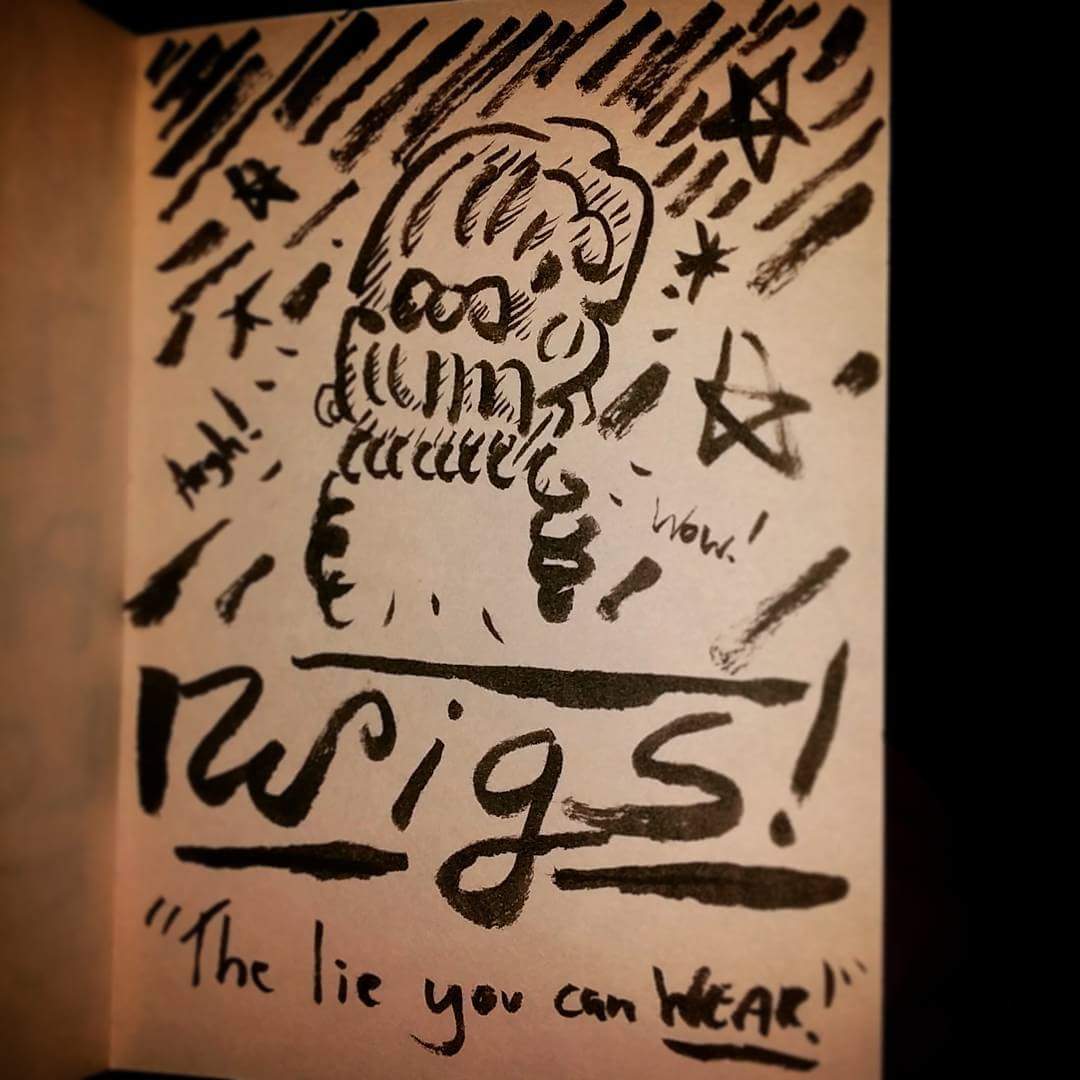 Argh!
Wow!
Wigs!
"The lie you can WEAR!"